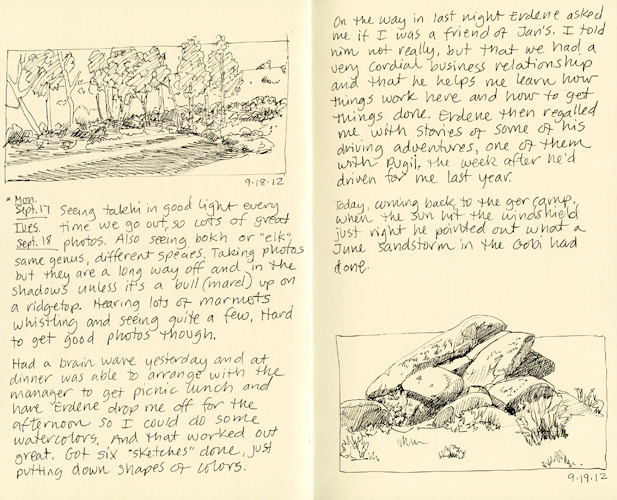 9.18.12
* Mon.
Sept. 17 Seeing takhi in good light every
Tues. time we go out, so lots of great
Sept. 18 photos. Also seeing bokh or "elk",
same genus, different species. Taking photos
but they are a long way off and in the
shadows unless it's a bull (maral) up on
a ridgetop. Hearing lots of marmots
whistling and seeing quite a few. Hard
to get good photos though.
Had a brain wave yesterday and at
dinner was able to arrange with the
manager to get picnic lunch and
have Erdene drop me off for the
afternoon so I could do some
watercolors. And that worked out
great. Got six "sketches" done, just
putting down shapes of colors.
On the way in last night Erdene asked
me if I was a friend of Jan's. I told
him not really, but that we had a
very cordial business relationship
and that he helps me learn how
things work here and how to get
things done. Erdene then regaled
me with stories of some of his
driving adventures, one of them
with Pugii, the week after he'd
driven for me last year.
Today, coming back to the ger camp,
when the sun hit the windshield
just right he pointed out what a
June sandstorm in the Gobi had
done.
9.19.12